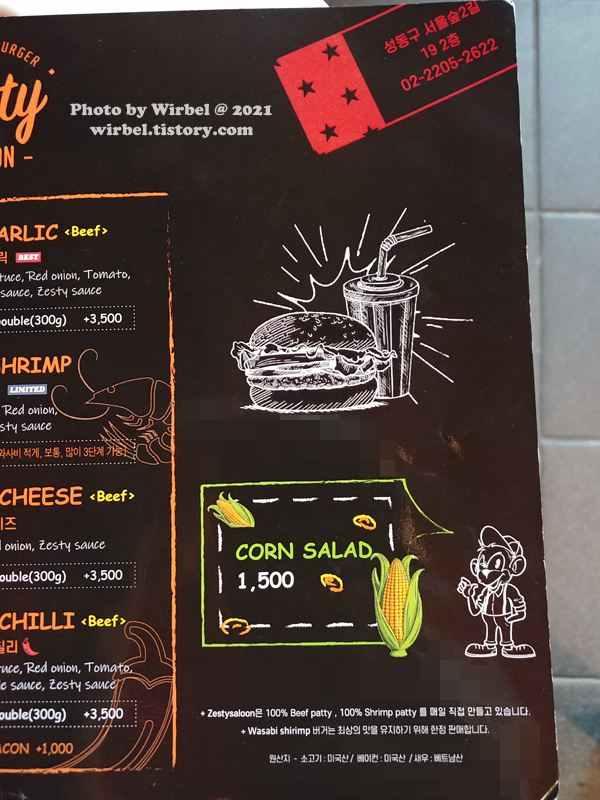 BURGER
ty
ON -
성동구 서울숲2길
19 2층
02-2205-2622
Photo by Wirbel @ 2021
wirbel.tistory.com
ARLIC <Beef>
릭 BEST
tuce, Red onion, Tomato,
sauce, Zesty sauce
ouble(300g) +3,500
SHRIMP
LIMITED
Red onion,
sty sauce
와사비 적게, 보통, 많이 3단계 가능
CHEESE <Beef>
이즈
d onion, Zesty sauce
ouble(300g) +3,500
CORN SALAD
1,500
CHILLI <Beef>
칠리
tuce, Red onion, Tomato,
le sauce, Zesty sauce
ouble(300g) +3,500
ACON +1,000
+ Zestysaloon은 100% Beef patty , 100% Shrimp patty 를 매일 직접 만들고 있습니다.
+ Wasabi shirimp 버거는 최상의 맛을 유지하기 위해 한정 판매합니다.
원산지 - 소고기 : 미국산 / 베이컨 : 미국산 / 새우 : 베트남산